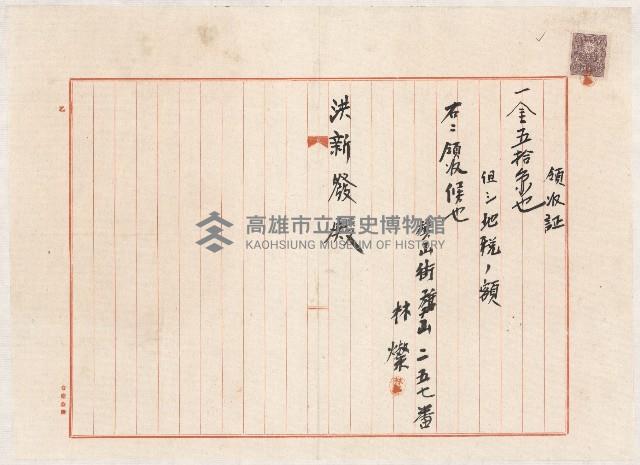 領收証
一金五拾円也
但シ地税ノ額
右ニ領収候也
鳳山街鳳山二五七番
林燦
洪新發殿
乙
高雄市立歷史博物館
KAOHSIUNG MUSEUM OF HISTORY